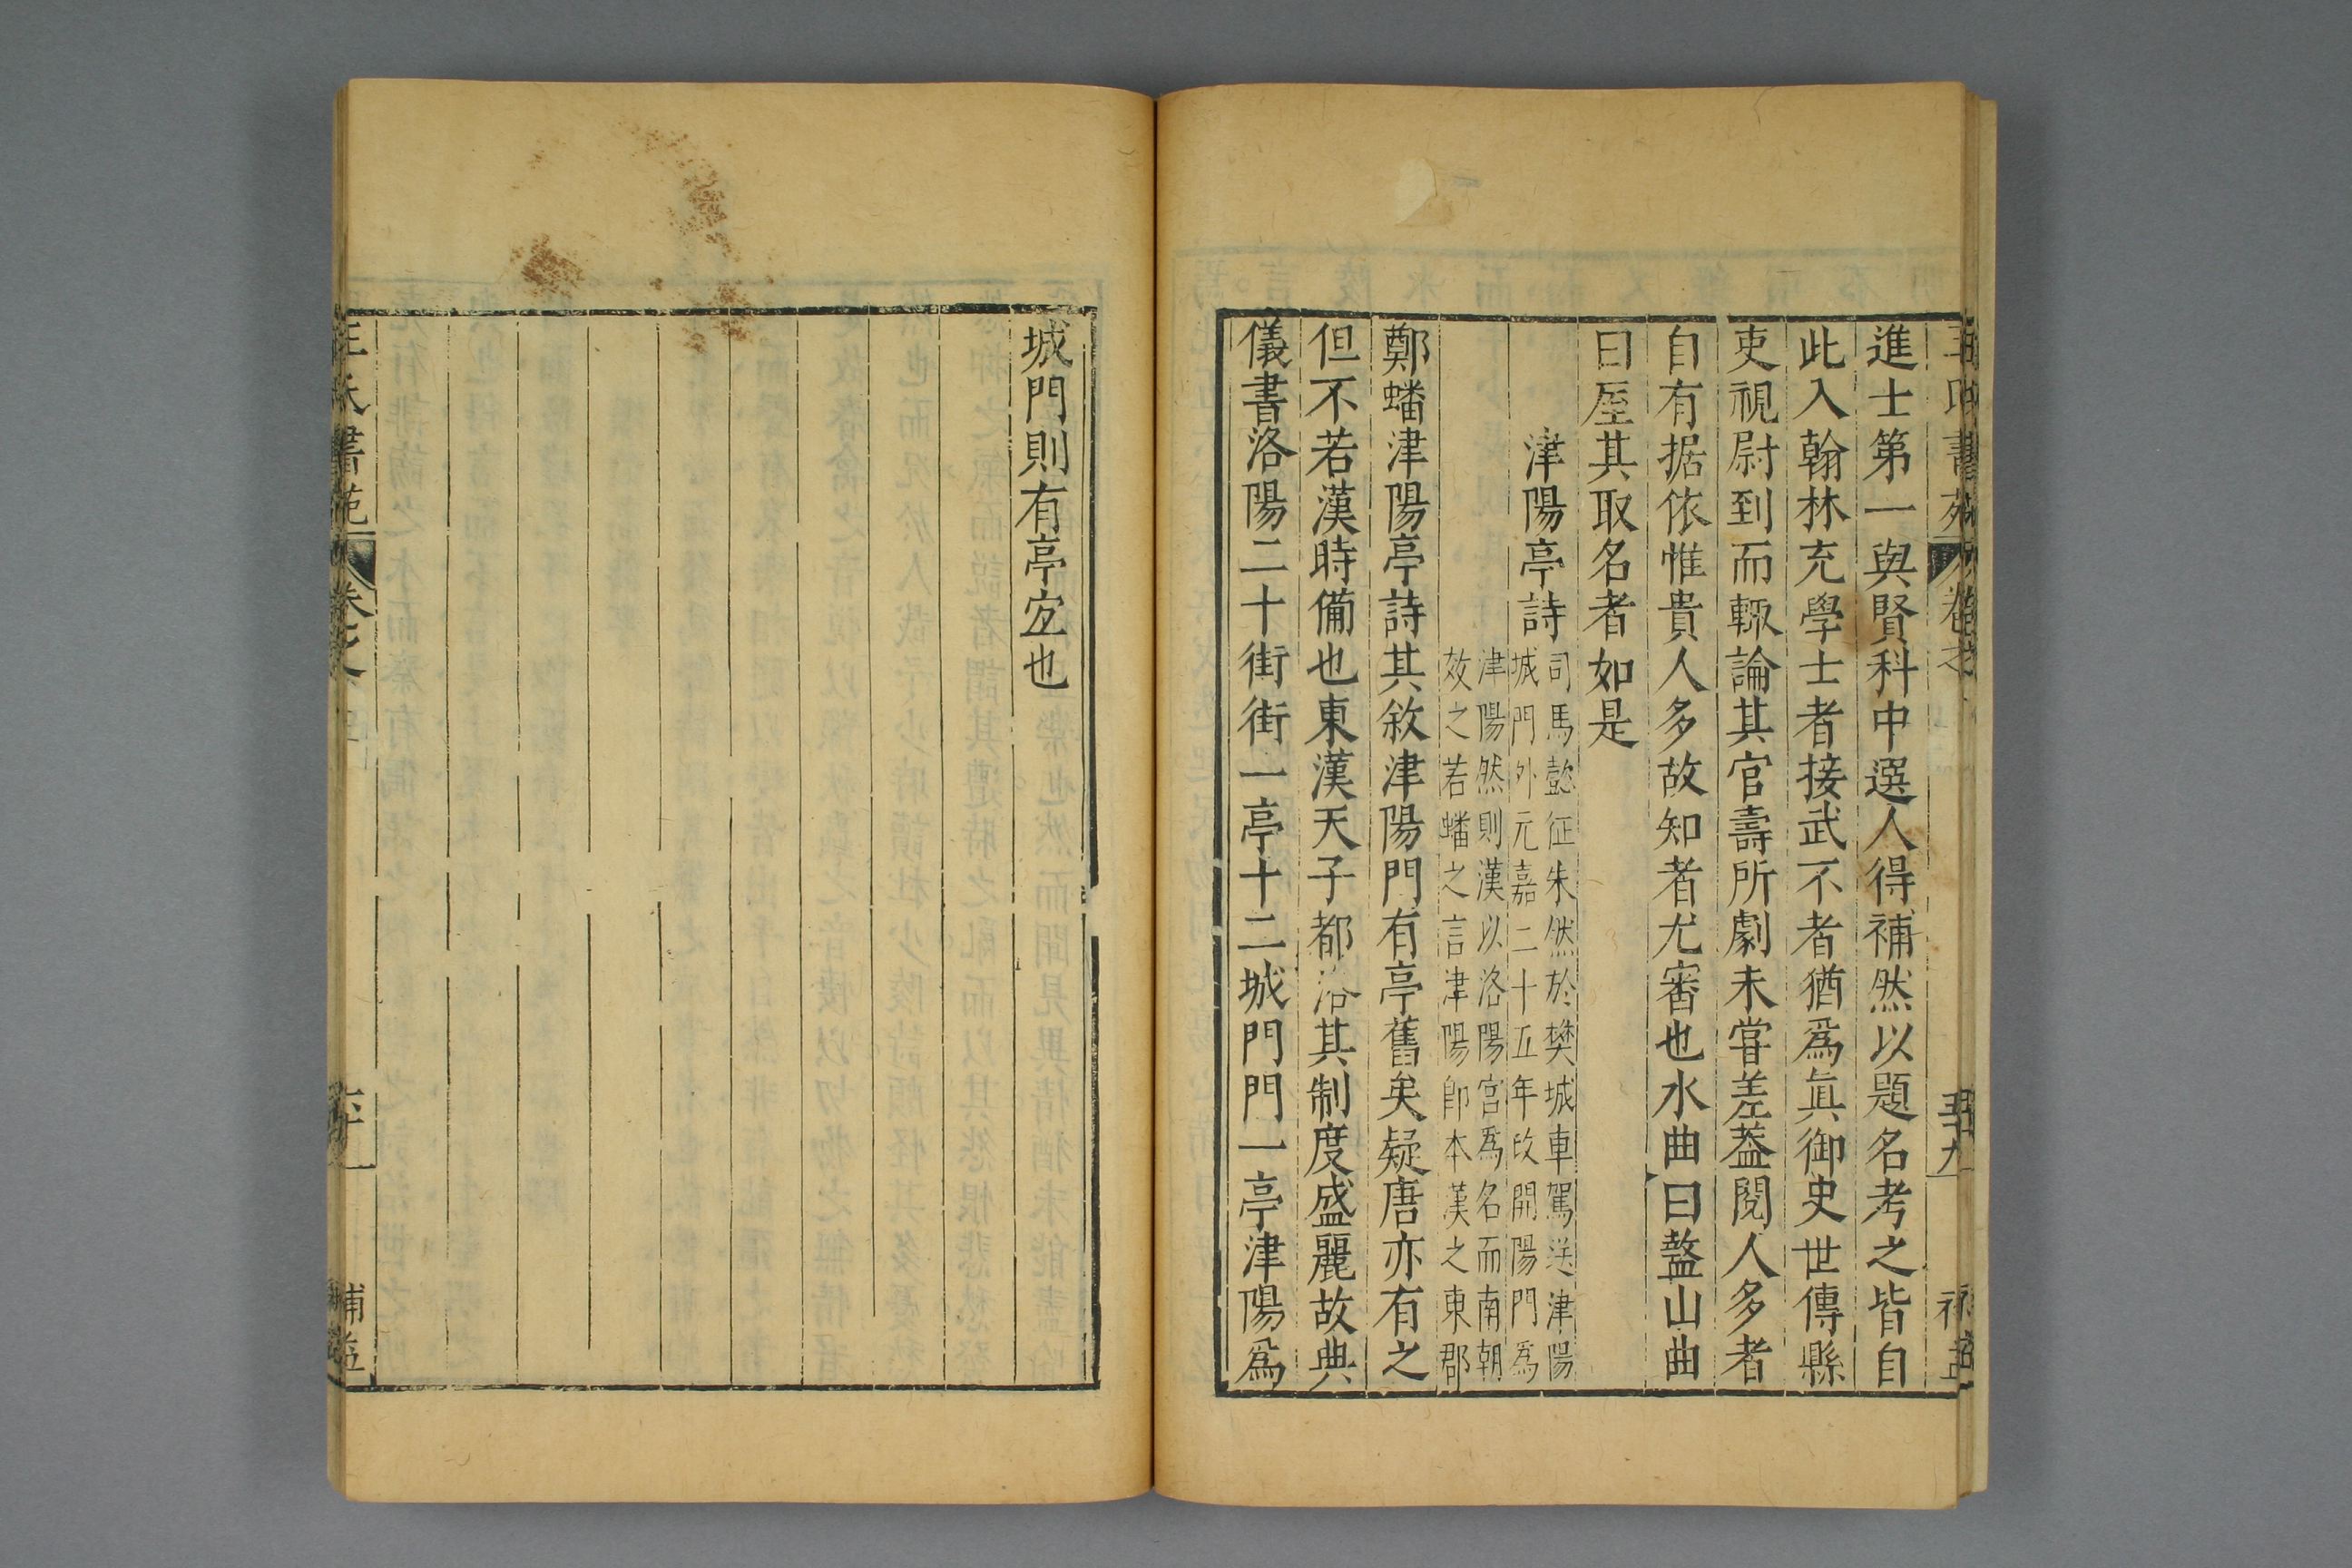 進士第一與賢科中選人得補然以題名考之皆自
此入翰林充學士者接武不者猶爲眞御史世傳縣
吏視尉到而輒論其官壽所劇未甞差蓋閱人多者
自有据依惟貴人多故知者尤審也水曲曰盩山曲
曰厔其取名者如是
津陽亭詩
司馬懿征朱然於樊城車駕送津陽
城門外元嘉二十五年改開陽門爲
津陽然則漢以洛陽宮爲名而南朝
效之若蟠之言津陽卽本漢之東郡
鄭蟠津陽亭詩其敘津陽門有亭舊矣疑唐亦有之
但不若漢時備也東漢天子都洛其制度盛麗故典
儀書洛陽二十街街一亭十二城門門一亭津陽爲
城門則有亭宜也
王氏書苑 卷之
補益